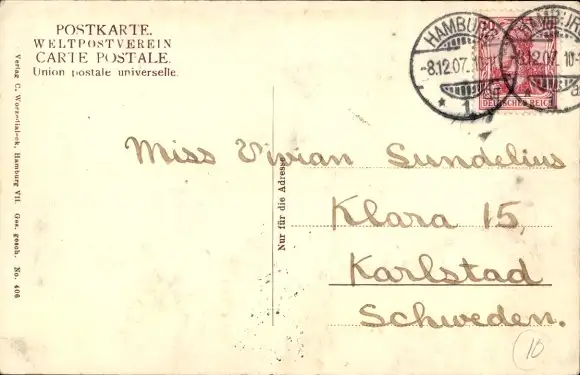 POSTKARTE.
WELTPOSTVEREIN
CARTE POSTALE.
Union postale universelle.
HAMBURG
-8.12.07. 10-11
* 1
HAMBURG
-8.12.07. 10-
DEUTSCHES REICH
Miss Vivian Sundelius
Klara 15,
Karlstad
Schweden.
Nur für die Adresse
Verlag C. Worzedialeck, Hamburg VII. Ges. gesch. No. 406
10